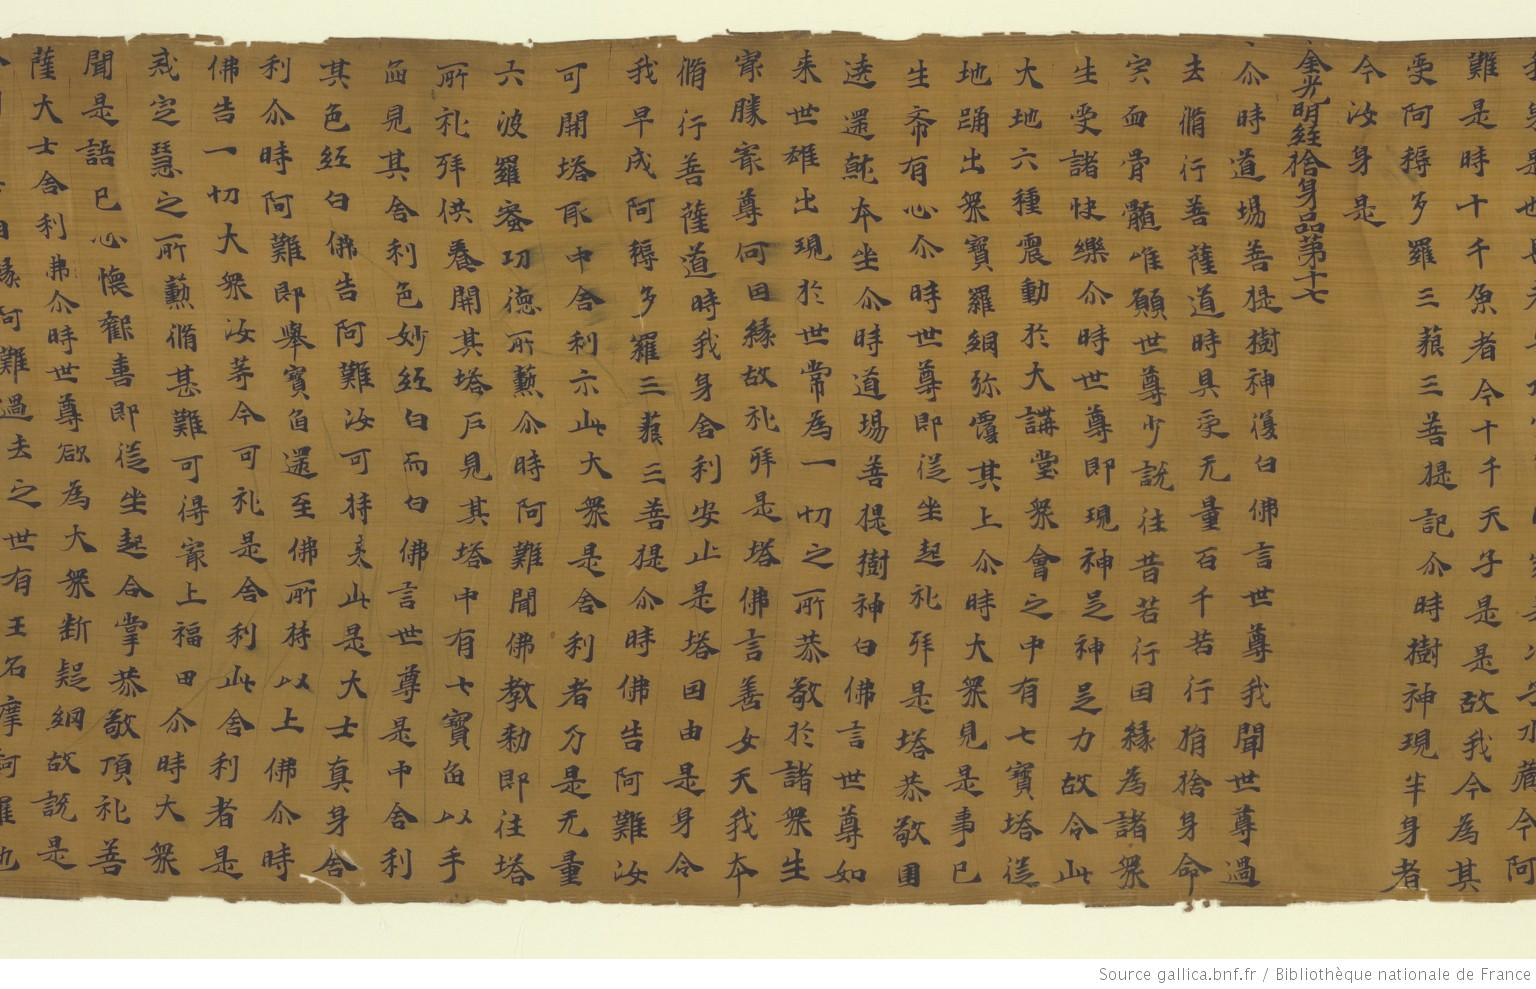 難是時十千魚者今十千天子是是故我今為其
受阿耨多羅三藐三菩提記尒時樹神現半身者
今汝身是
金光明經捨身品第十七
尒時道場菩提樹神復白佛言世尊我聞世尊過
去脩行菩薩道時具受无量百千苦行捐捨身命
宍血骨髓唯願世尊少說往昔苦行因緣為諸衆
生受諸快樂尒時世尊即現神足神足力故令此
大地六種震動於大講堂衆會之中有七寶塔從
地踊出衆寶羅網弥覆其上尒時大衆見是事已
生希有心尒時世尊即從坐起礼拜是塔恭敬圍
遶還就本坐尒時道場菩提樹神白佛言世尊如
来世雄出現於世常為一切之所恭敬於諸衆生
㝡勝㝡尊何因緣故礼拜是塔佛言善女天我本
脩行菩薩道時我身舍利安止是塔因由是身令
我早成阿耨多羅三藐三菩提尒時佛告阿難汝
可開塔取中舍利示此大衆是舍利者乃是无量
六波羅蜜功德所薰尒時阿難聞佛教勅即往塔
所礼拜供養開其塔戶見其塔中有七寶函以手
函見其舍利色妙紅白而白佛言世尊是中舍利
其色紅白佛告阿難汝可持来此是大士真身舍
利尒時阿難即舉寶函還至佛所持以上佛尒時
佛告一切大衆汝等今可礼是舍利此舍利者是
戒定慧之所薰脩甚難可得㝡上福田尒時大衆
聞是語已心懷歡喜即從坐起合掌恭敬頂礼菩
薩大士舍利弗尒時世尊欲為大衆斷疑網故說是
難過去之世有王名摩訶羅